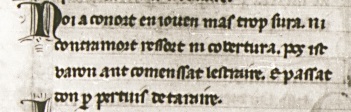 Noi a conort en iouen mas trop fura. ni
contra mort ressort ni cobertura. pos ist
baron ant comensat lestraire. & passat
con p pertuis de taraire.